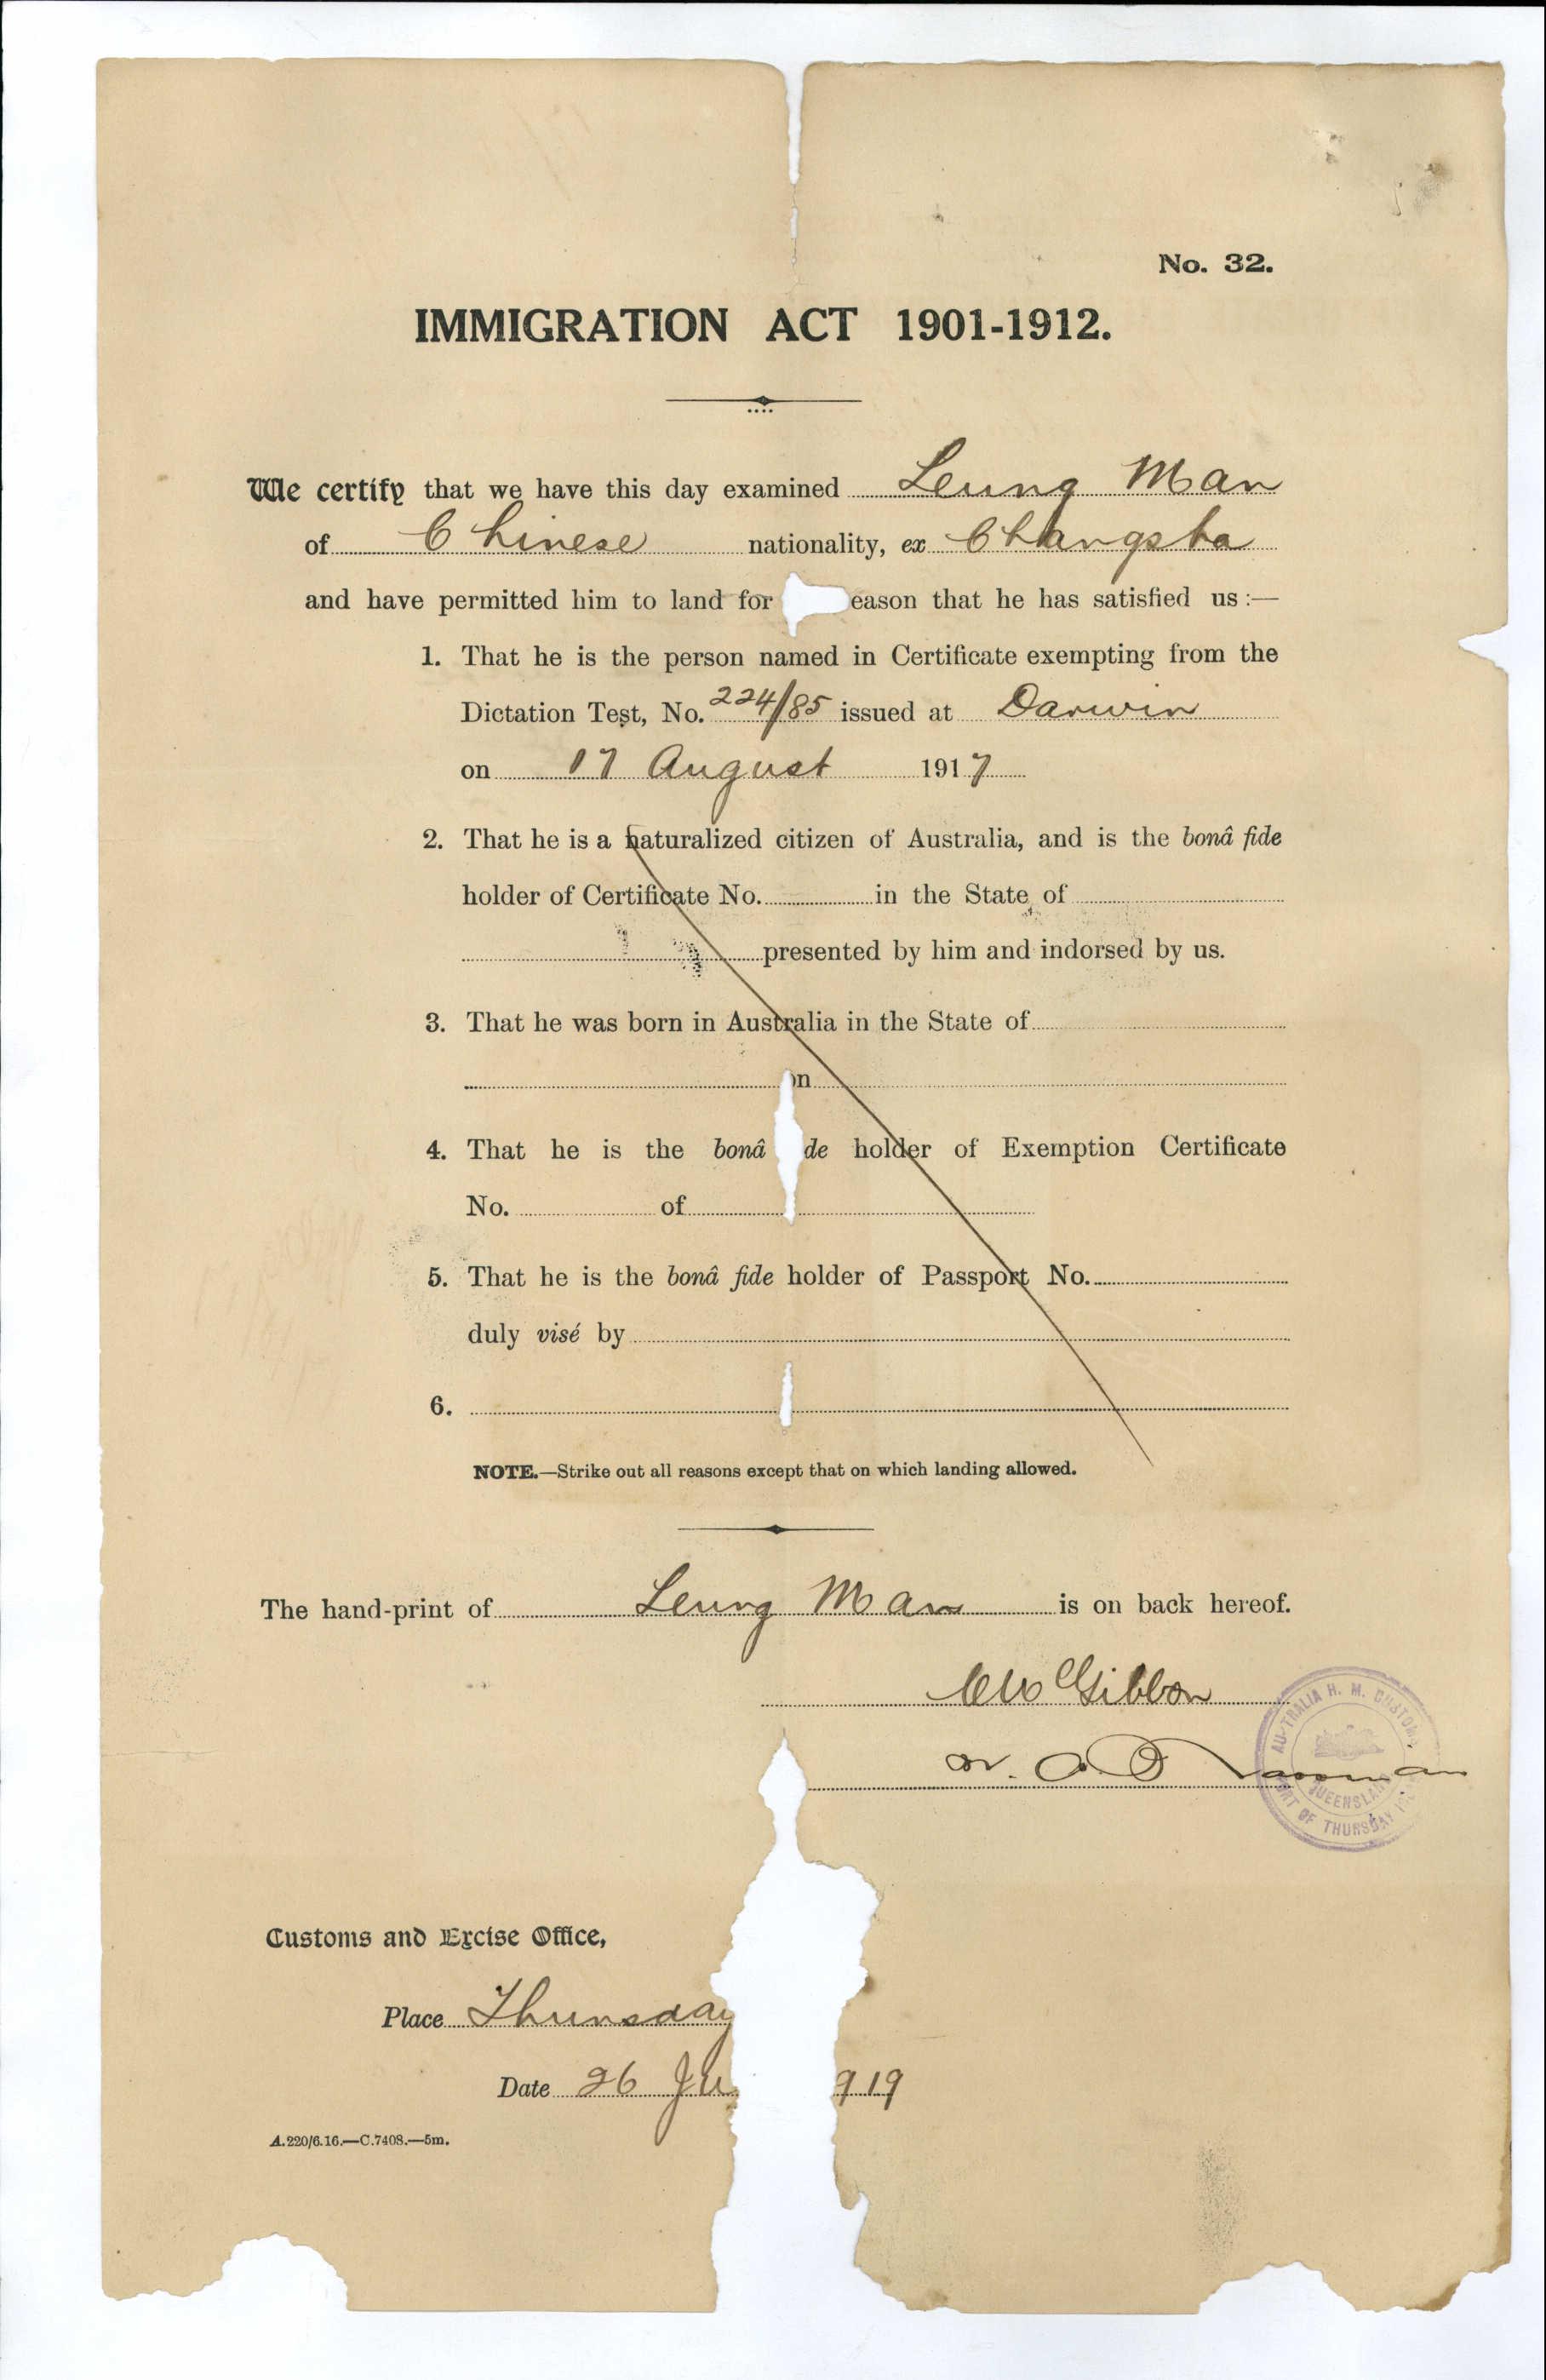 No. 32.
IMMIGRATION ACT 1901-1912.
We certify that we have this day examined Leung Man
of Chinese nationality, ex Changsha
and have permitted him to land for eason that he has satisfied us:—
1. That he is the person named in Certificate exempting from the
Dictation Test, No. 224/85 issued at Darwin
on 17 August 1917
2. That he is a naturalized citizen of Australia, and is the bonâ fide
holder of Certificate No. in the State of
presented by him and indorsed by us.
3. That he was born in Australia in the State of
on
4. That he is the bonâ de holder of Exemption Certificate
No. of
5. That he is the bonâ fide holder of Passport No.
duly visé by
6.
NOTE.—Strike out all reasons except that on which landing allowed.
The hand-print of Leung Man is on back hereof.
Gibbon
AUSTRALIA H. M. CUSTOMS
QUEENSLAND
PORT OF THURSDAY
Customs and Excise Office,
Place Thursday
Date 26 Ju 919
A.220/6.16.—C.7408.—5m.